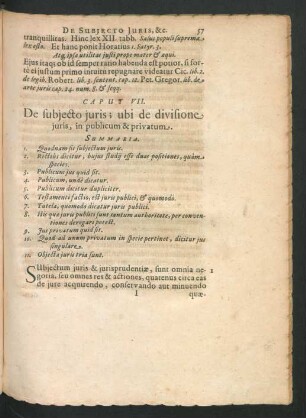 DE SUBJECTO JURIS, &c. 57
tranquillitas. Hinc lex XII. tabb. Salus populi suprema
lex esto. Et hanc ponit Horatius 1. Satyr. 3.
Atq, ipsa utilitas justi prope mater & æqui.
Ejus itaq; ob id semper ratio habenda est potior, si for-
te ei justum primo intuitu repugnare videatur Cic. lib. 2.
de legib. Robert. lib. 3. sentent. cap. 12. Pet. Gregor. lib. de
arte juris cap. 24. num. 8. & seqq.
CAPUT VII.
De subjecto juris; ubi de divisione
juris, in publicum & privatum.
SUMMARIA.
1. Quodnam sit subjectum juris.
2. Rectius dicitur, hujus studij esse duas positiones, quàm
species.
3. Publicum jus quid sit.
4. Publicum, unde dicatur.
5. Publicum dicitur dupliciter.
6. Testamenti factio, est juris publici, & quomodo.
7. Tutela, quomodo dicatur juris publici.
8. His quæ juris publici sunt tantum authoritate, per conven-
tiones derogari potest.
9. Jus privatum quid sit.
10. Quod ad unum privatum in specie pertinet, dicitur jus
singulare.
10. Objecta juris tria sunt.
SUbjectum juris & jurisprudentiæ, sunt omnia ne- 1
gotia, seu omnes res & actiones, quatenus circa eas
de jure acquirendo, conservando aut minuendo
I quæ-